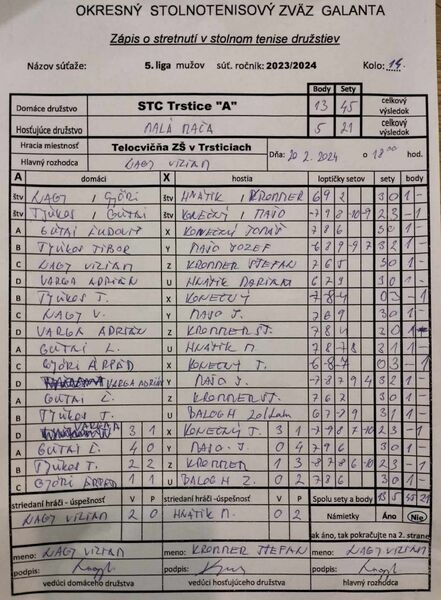 OKRESNÝ STOLNOTENISOVÝ ZVÄZ GALANTA
Zápis o stretnutí v stolnom tenise družstiev
Názov súťaže: 5. liga mužov súť. ročník: 2023/2024 Kolo: 14.
Body Sety
Domáce družstvo STC Trstice "A" 13 45 celkový výsledok
Hosťujúce družstvo MALÁ MAČA 5 21 celkový výsledok
Hracia miestnosť Telocvičňa ZŠ v Trsticiach
Hlavný rozhodca NAGY VILIAM Dňa: 20 2. 2024 o 18 00 hod.
A domáci X hostia loptičky setov sety body
štv NAGY / GYÖRI štv HNÁTIK / KROMMER 6 9 2 3 0 1 -
štv TYUKOS / GUTAI štv KONEČNÝ / MAJO -7 9 8 -10 -9 2 3 - 1
A GUTAI ĽUDOVÍT X KONEČNÝ TOMÁŠ 7 8 6 3 0 1 -
B TYUKOS TIBOR Y MAJO JOZEF -6 8 9 -9 7 3 2 1 -
C NAGY VILIAM Z KROMMER ŠTEFAN 7 6 5 3 0 1 -
D VARGA ADRIÁN U HNÁTIK MARIÁN 6 7 9 3 0 1 -
B TYUKOS T. X KONEČNÝ -7 -8 -4 0 3 - 1
C NAGY V. Y MAJO J. 7 6 9 3 0 1 -
D VARGA ADRIÁN Z KROMMER ŠT. 7 8 4
A GUTAI L. U HNÁTIK M. 7 8 -7 8 3 1 1 -
C GYÖRI ÁRPÁD X KONEČNÝ T. -6 -8 -7 0 3 - 1
D VARGA ADRIÁN Y MAJO J. -8 7 9 4 3 2 1 -
A GUTAI L. Z KROMMER ŠT. 7 6 2 3 0 1 -
B TYUKOS T. U BALOGH Zoltán 6 -7 8 9 3 1 1 -
D VARGA 3 1 X KONEČNÝ T. 3 1 -7 9 8 -7 -10 2 3 - 1
A GUTAI L. 4 0 Y MAJO J. 0 4 7 9 6 3 0 1 -
B TYUKOS T. 2 2 Z KROMMER 1 3 -8 7 8 -6 -10 2 3 - 1
C GYÖRI ÁRPÁD 1 1 U BALOGH Z. 0 2 7 8 6 3 0 1 -
striedaní hráči - úspešnosť V P striedaní hráči - úspešnosť V P Spolu sety a body 13 5 45 21
NAGY VILIAM 2 0 HNÁTIK M. 0 2 Námietky Áno Nie
ak áno, tak pokračujte na 2. strane
meno: NAGY VILIAM meno: KROMMER ŠTEFAN meno: NAGY VILIAM
podpis: podpis: podpis:
vedúci domáceho družstva vedúci hosťujúceho družstva hlavný rozhodca